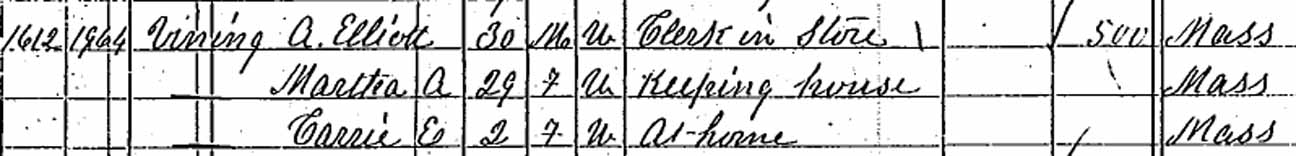 1612 1964 Vining A. Elliott 30 M W Clerk in Store 500 Mass
— Martha A 29 F W Keeping house Mass
— Carrie E 2 F W At home Mass